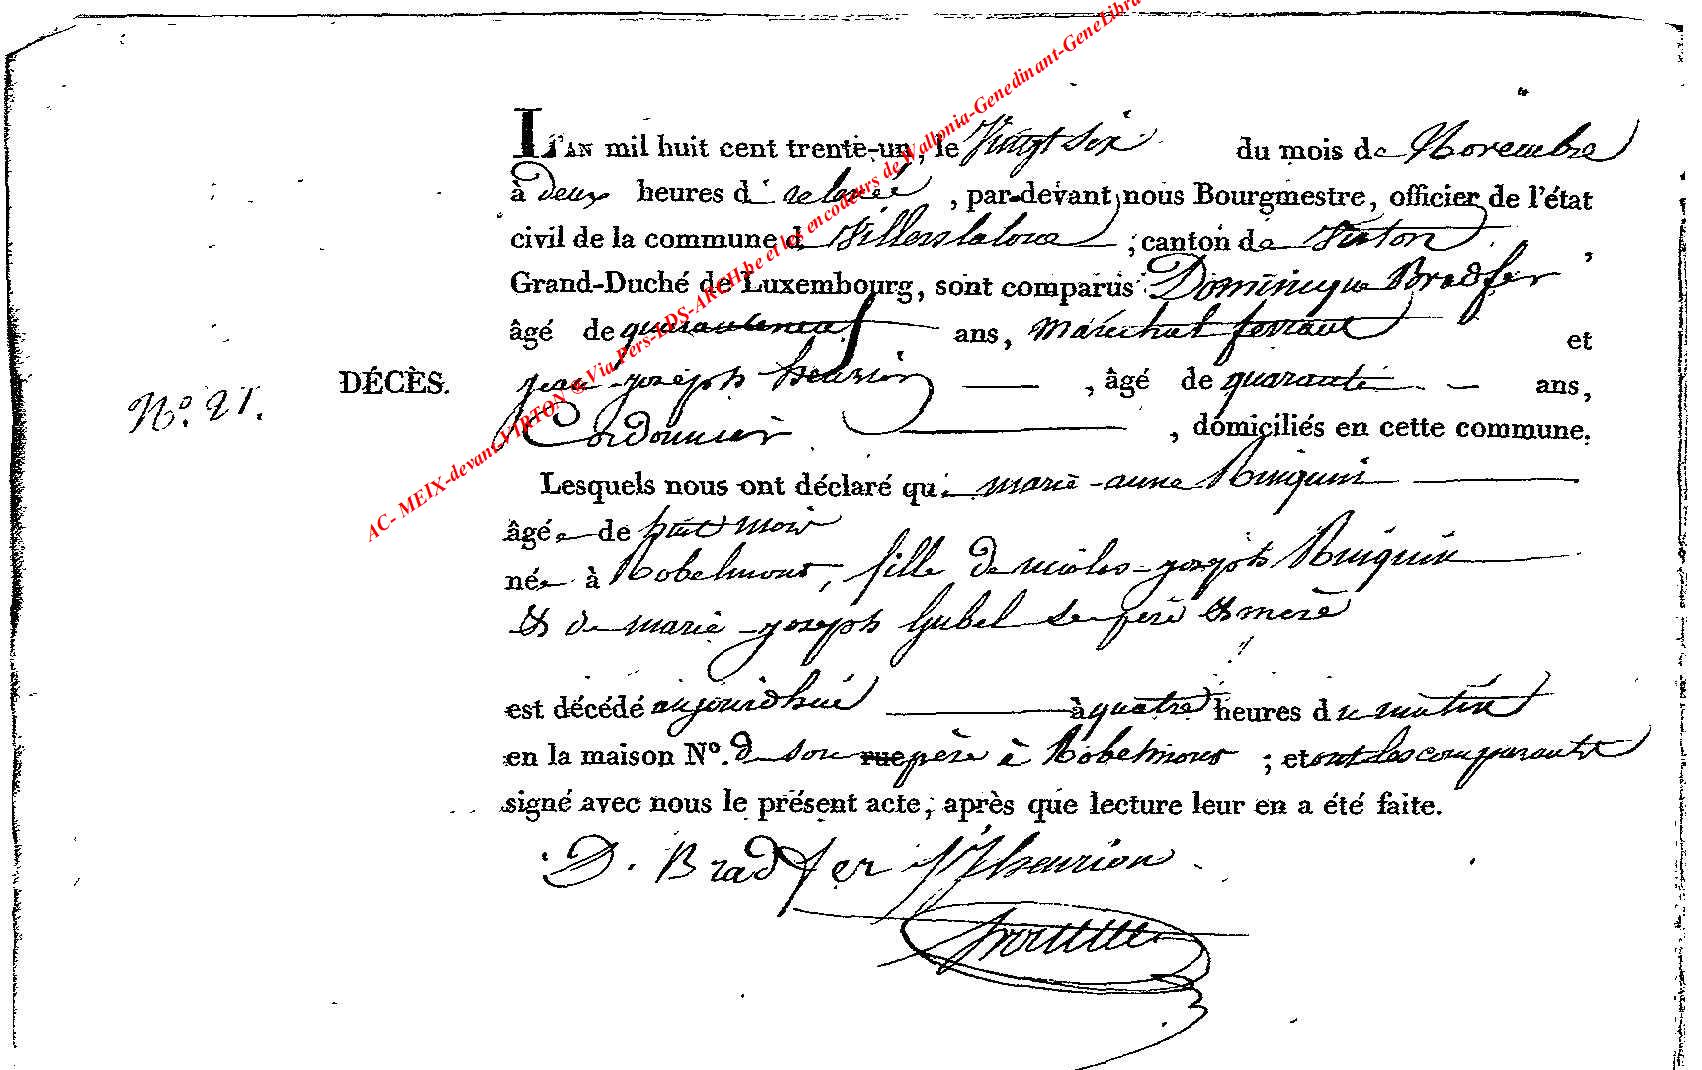 L'AN mil huit cent trente-un, le Vingt six du mois de Novembre
à deux heures de relevée, par-devant nous Bourgmestre, officier de l'état
civil de la commune de Villerslaloue, canton de Virton,
Grand-Duché de Luxembourg, sont comparus Dominique Bradfer
âgé de quaranteneuf ans, maréchal ferrant et
DÉCÈS. jean-joseph heurion, âgé de quarante ans,
N.º 21.
Cordonnier, domiciliés en cette commune.
Lesquels nous ont déclaré que marie-anne
âgée de huit mois
née à Robelmont, fille de nicolas-joseph
et de marie-joseph de père et mère
est décédé aujourdhui à quatre heures du matin
en la maison Nº. de son rue père à Robelmont; et ont les comparants
signé avec nous le présent acte, après que lecture leur en a été faite.
D. Bradfer JJheurion
AC- MEIX-devant-VIRTON © Via Pers-LDS-ARCH.be et les encodeurs de Wallonia-Genedinant-GeneLibra